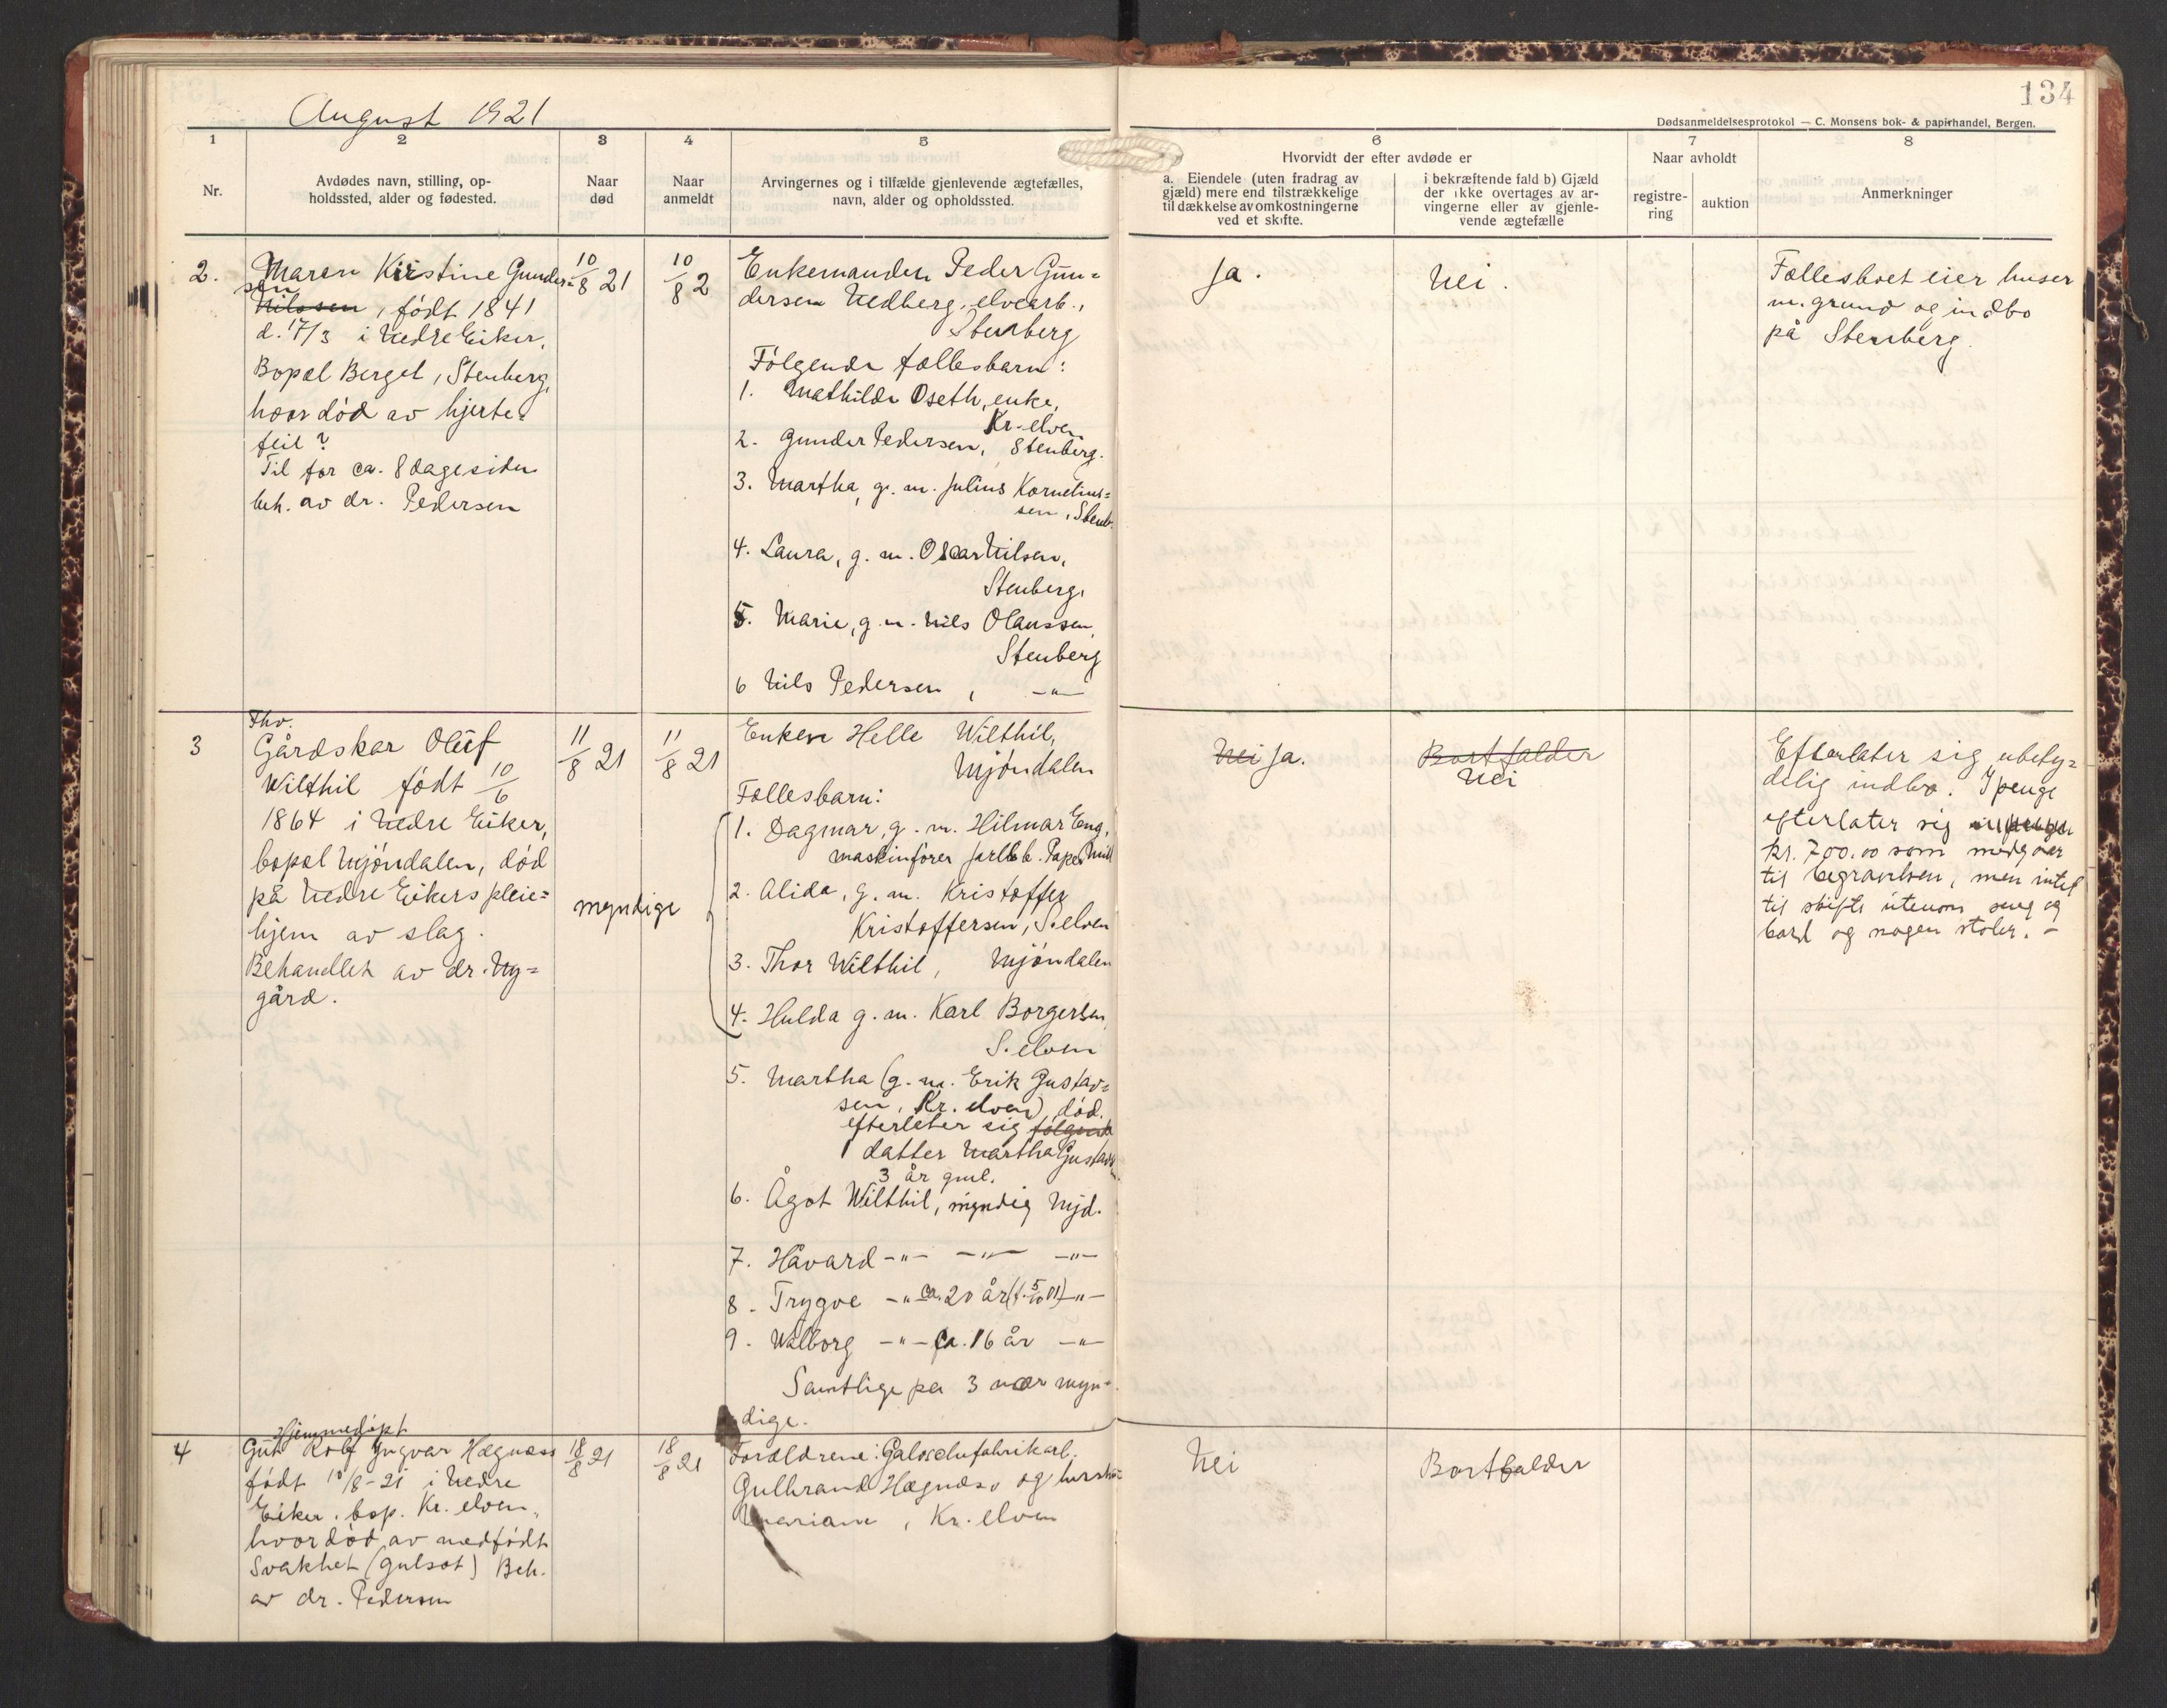 August 1921
134
Dødsanmeldelsesprotokol — C. Monsens bok- & papirhandel, Bergen.
1
2
3
4
5
6
7
8
Nr.
Avdødes navn, stilling, op-
holdssted, alder og fødested.
Naar
død
Naar
anmeldt
Arvingernes og i tilfælde gjenlevende ægtefælles,
navn, alder og opholdssted.
Hvorvidt der efter avdøde er
a. Eiendele (uten fradrag av
gjæld) mere end tilstrækkelige
til dækkelse av omkostningerne
ved et skifte.
i bekræftende fald b) Gjæld
der ikke overtages av ar-
vingerne eller av gjenle-
vende ægtefælle
Naar avholdt
registre-
ring
auktion
Anmerkninger
2.
Maren Kristine Gunder-
sen
Nilssen, født 1841
d. 17/3 i Nedre Eiker,
Bopæl Berget, Stenberg,
hvor død av hjerte-
feil?
Til for ca. 8 dage siden
beh. av dr. Pedersen
10/8 21
10/8 2
Enkemanden Peder Gun-
dersen Nedberg, elvearb.,
Stenberg
Følgende fællesbarn:
1. Mathilde Oseth, enke,
Kr.-elven
2. Gunder Pedersen, Stenberg.
3. Martha, g. m. Julius Kornelius-
sen, Stenb.
4. Laura, g. m. Oscar Nilsen,
Stenberg,
5. Marie, g. m. Nils Olaussen,
Stenberg
6 Nils Pedersen, -"-
Ja.
Nei.
Fællesboet eier huser
m. grund og indbo
på Stenberg.
3
Fhv.
Gårdskar Oluf
Wilthil født 10/6
1864 i Nedre Eiker,
bopæl Mjøndalen, død
på Nedre Eikers pleie-
hjem av slag.
Behandlet av dr. Ny-
gård.
11/8 21
11/8 21
myndige
Enken Helle Wilthil,
Mjøndalen
Fællesbarn:
1. Dagmar, g. m. Hilmar Eng,
maskinfører Papermill
2. Alida, g. m. Kristoffer
Kristoffersen, S.elven
3. Thor Wilthil, Mjøndalen
4. Hulda g. m. Karl Borgersen
S. elven
5. Martha (g. m. Erik Gustav-
sen, Kr. elven), død.
efterlater sig følgende
datter Martha Gustavs
3 år gml.
6. Ågot Wilthil, myndig Mjd.
7. Håvard -"- -"- -"-
8. Trygve -"- ca. 20 år (f. 5/10 01) -"-
9. Walborg -"- ca. 16 år -"-
Samtlige på 3 nær myn-
dige.
Nei Ja.
Bortfalder
Nei
Efterlater sig ubety-
delig indbo. I penge
efterlater sig
kr. 700.00 som medgaar
til begravelsen, men intet
til skifte utenom seng og
bord og nogen stoler. -
4
Hjemmedøpt
Gut Rolf Yngvar Hægnæss
født 10/8-21 i Nedre
Eiker, bop. Kr. elven,
hvor død av medfødt
Svakhet (gulsot) Beh.
av dr. Pedersen
18/8 21
18/8 21
Forældrene: Galoschefabrikarb.
Gulbrand Hægnæss og hustru
Mariane, Kr. elven
Nei
Bortfalder